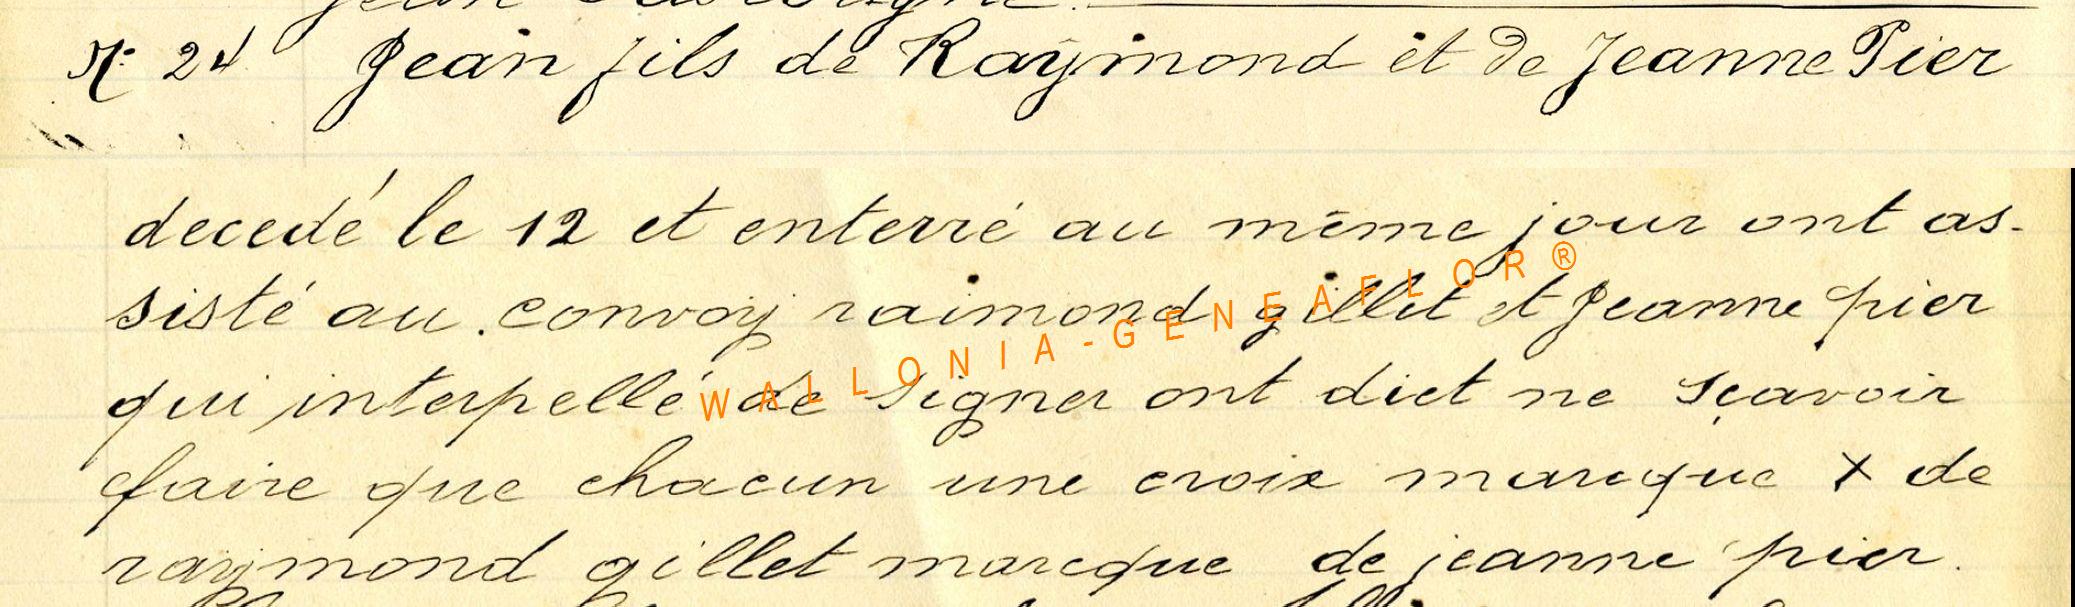 N° 24 Jean fils de Raymond et de Jeanne Pier
decedé le 12 et enterré au même jour ont as-
sisté au convoy raimond gillet et Jeanne pier
qui interpellé de signer ont dict ne sçavoir
faire que chacun une croix marque X de
raymond gillet marcque de jeanne pier.
WALLONIA-GENEAFLOR®